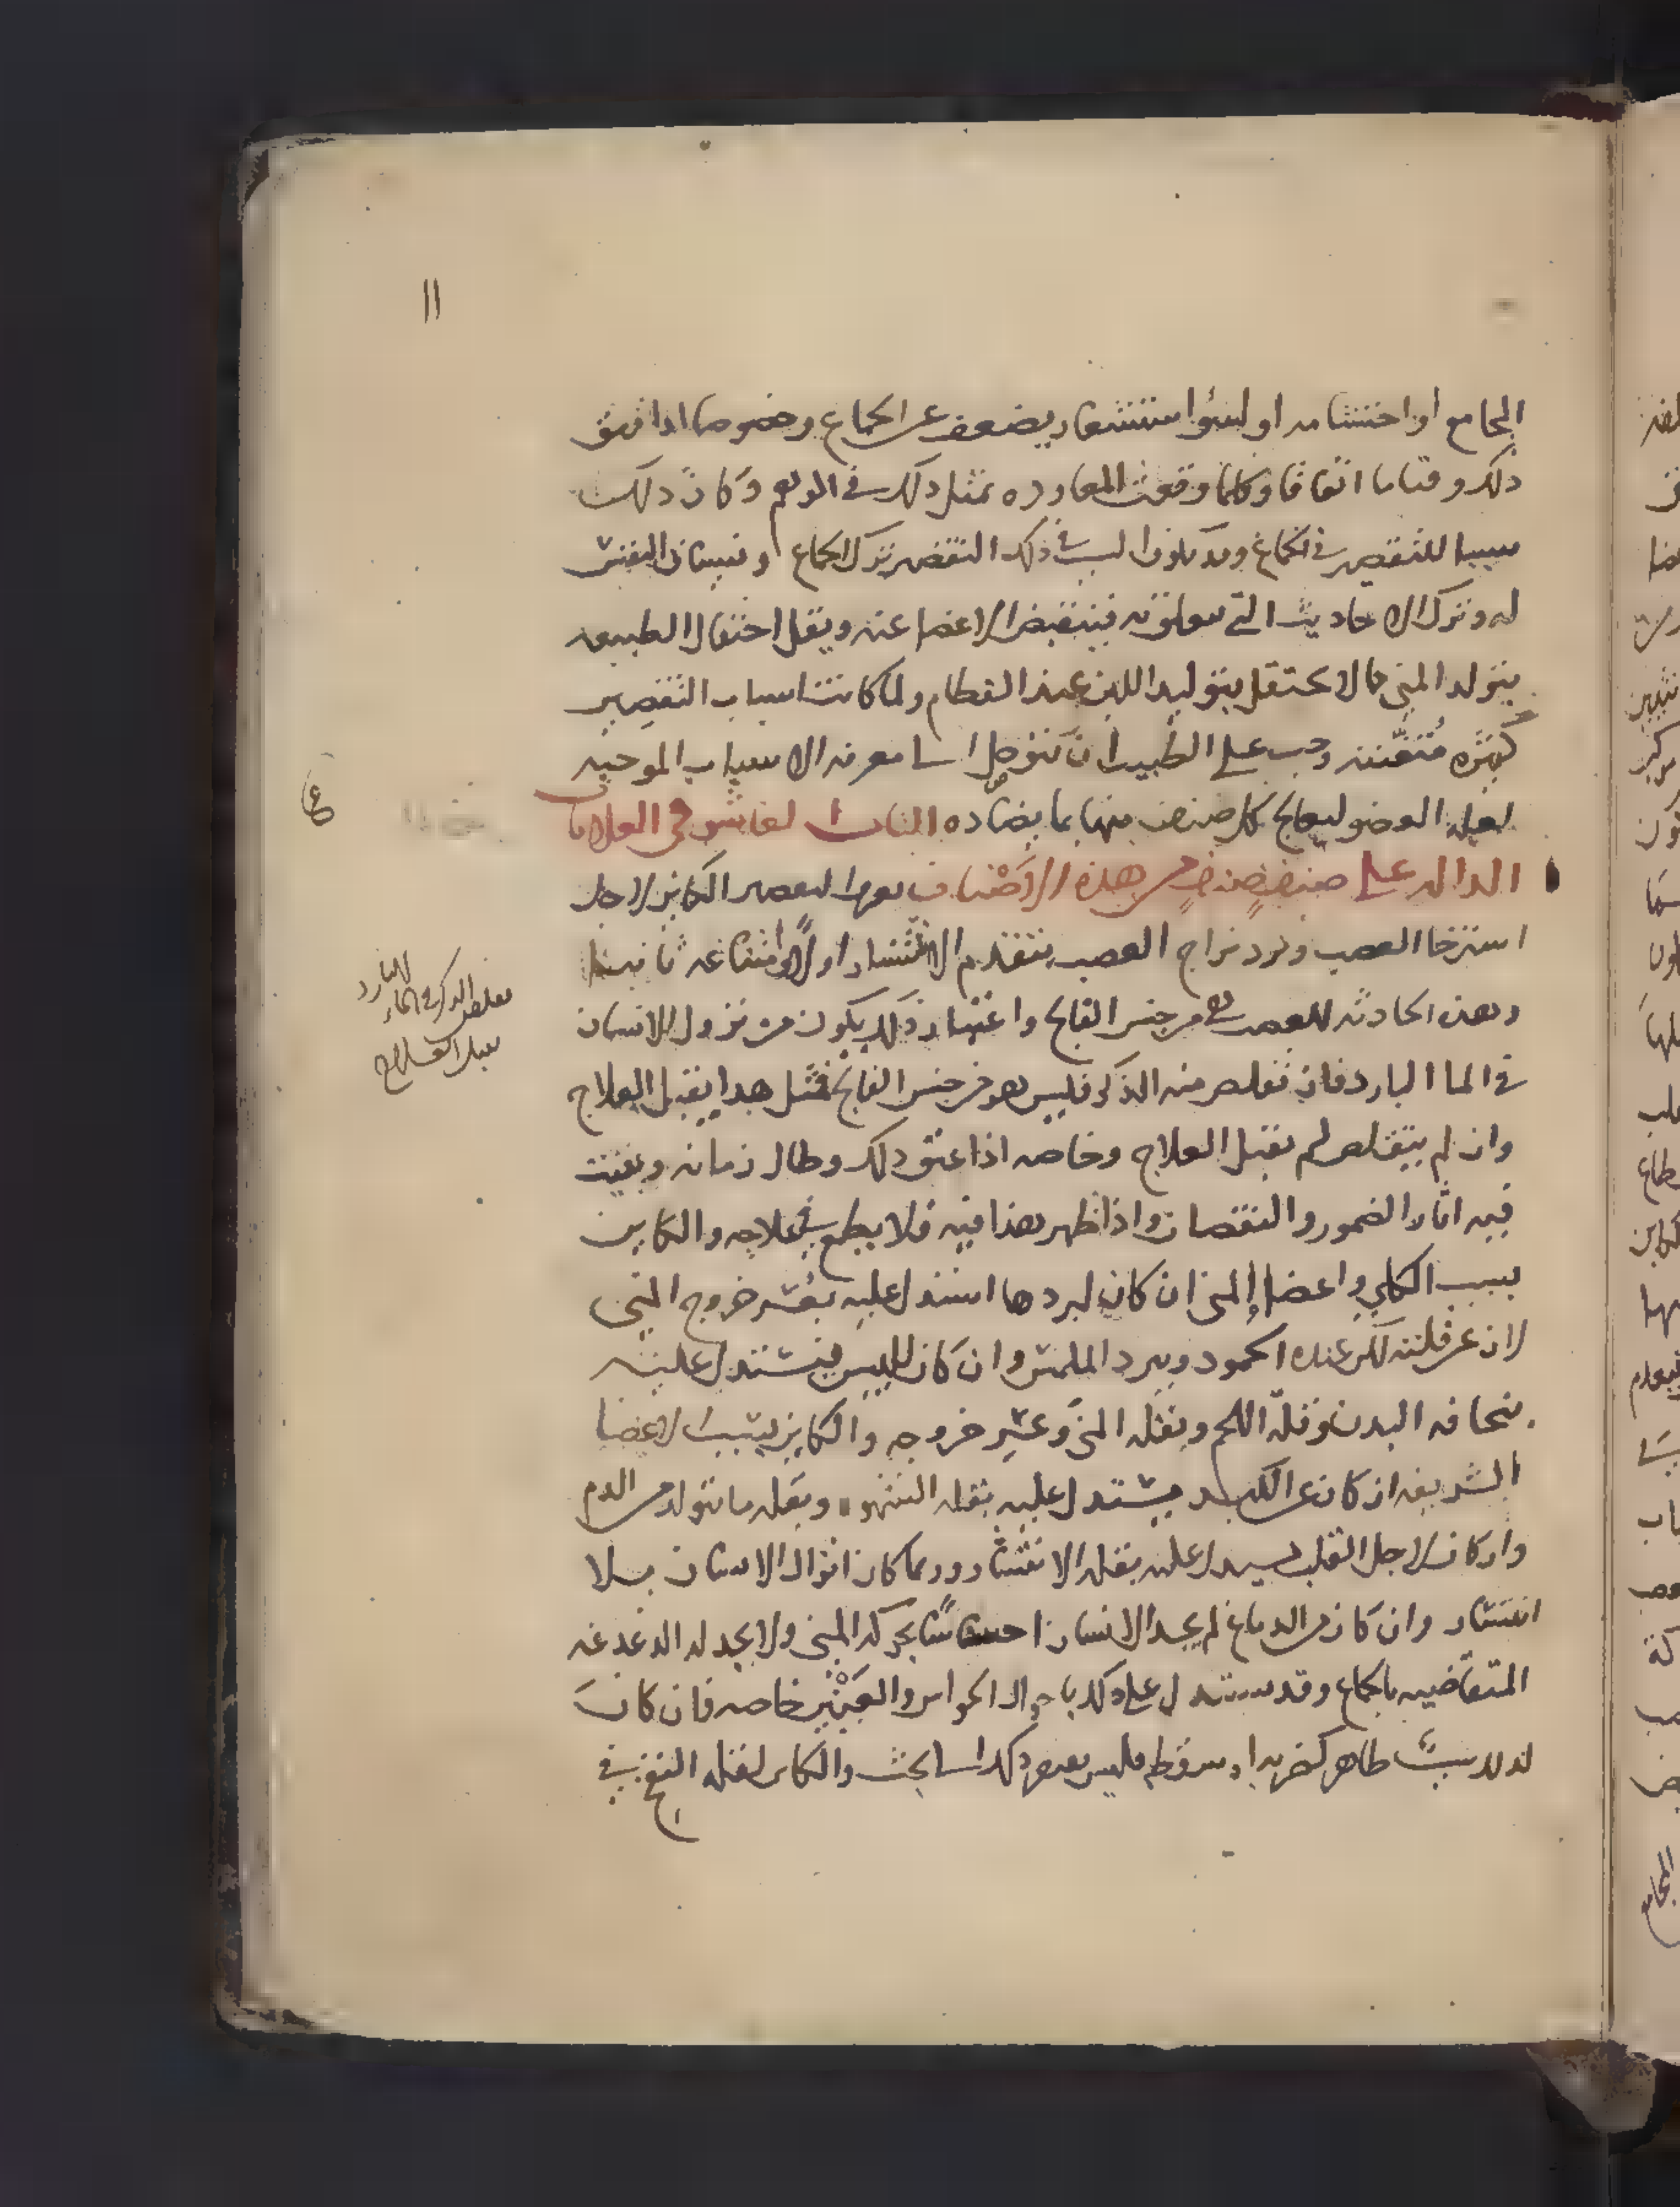 ١١
المجامع او احتشامه او لسؤ استشعار يضعف عن الجماع وخصوصا اذا اتفق
ذلك وقتا ما اتفاقا وكلما وقعت المعاوده تمثل ذلك في الوهم وكان ذلك
سببا للتقصير في الجماع وقد يكون السبب في ذلك التقصير ترك الجماع ونسيان النفس
له وترك الاحاديث التي تتعلق به فينقبض الاعضا عنه ويقل احتفال الطبيعه
بتولد المني كما لا تحتفل بتوليد اللبن عند الفطام ولما كانت اسباب التقصير
كثيره متفننه وجب على الطبيب ان يتوصل الى معرفه الاسباب الموجبه
لعله العضو ليعالج كل صنف منها بما يضاده الباب العاشر في العلامات
الداله على صنف صنف من هذه الاصناف التقصير الكاين لاجل
استرخا العصب وبرد مزاج العصب يتقدم الانتشار اولا وامتناعه ثانيا
وهذه الحادثه للعصب هي من جنس الفالج واعتبار ذلك يكون من نزول الانسان
في الما البارد فان تقلص منه الذكر فليس هو من جنس الفالج فمثل هذا يقبل العلاج
وان لم يتقلص لم يقبل العلاج وخاصه اذا عتق ذلك وطال زمانه وبقيت
فيه اثار الضمور والنقصان واذا ظهر هذا فيه فلا يطمع في علاجه والكاين
بسبب الكلي واعضا المني ان كان لبردها استدل عليه بعسر خروج المني
لا عن قلته لكن عنده الجمود وبرد الملمس وان كان لليبس فيستدل عليه
بنحافه البدن وقلة اللحم وبقله المني وعسر خروجه والكاين بسبب الاعضا
الشريفه ان كان عن الكبد يستدل عليه بقله الشهوه وبقله ما يتولد من الدم
وان كان لاجل القلب استدل عليه بقله الانتشار وربما كان انزال الانسان بلا
انتشار وان كان من الدماغ لم يجد الانسان احساسا بحركه المني ولا يجد له الدغدغه
المتقاضيه بالجماع وقد يستدل على ذلك باحوال الحواس والعينين خاصه فان كان
لذلك سببا ظاهر كضربه او سقطه فليس ذلك الى بحث والكاين لقله النفخ في
تقلص الذكر في الماء البارد
يقبل العلاج